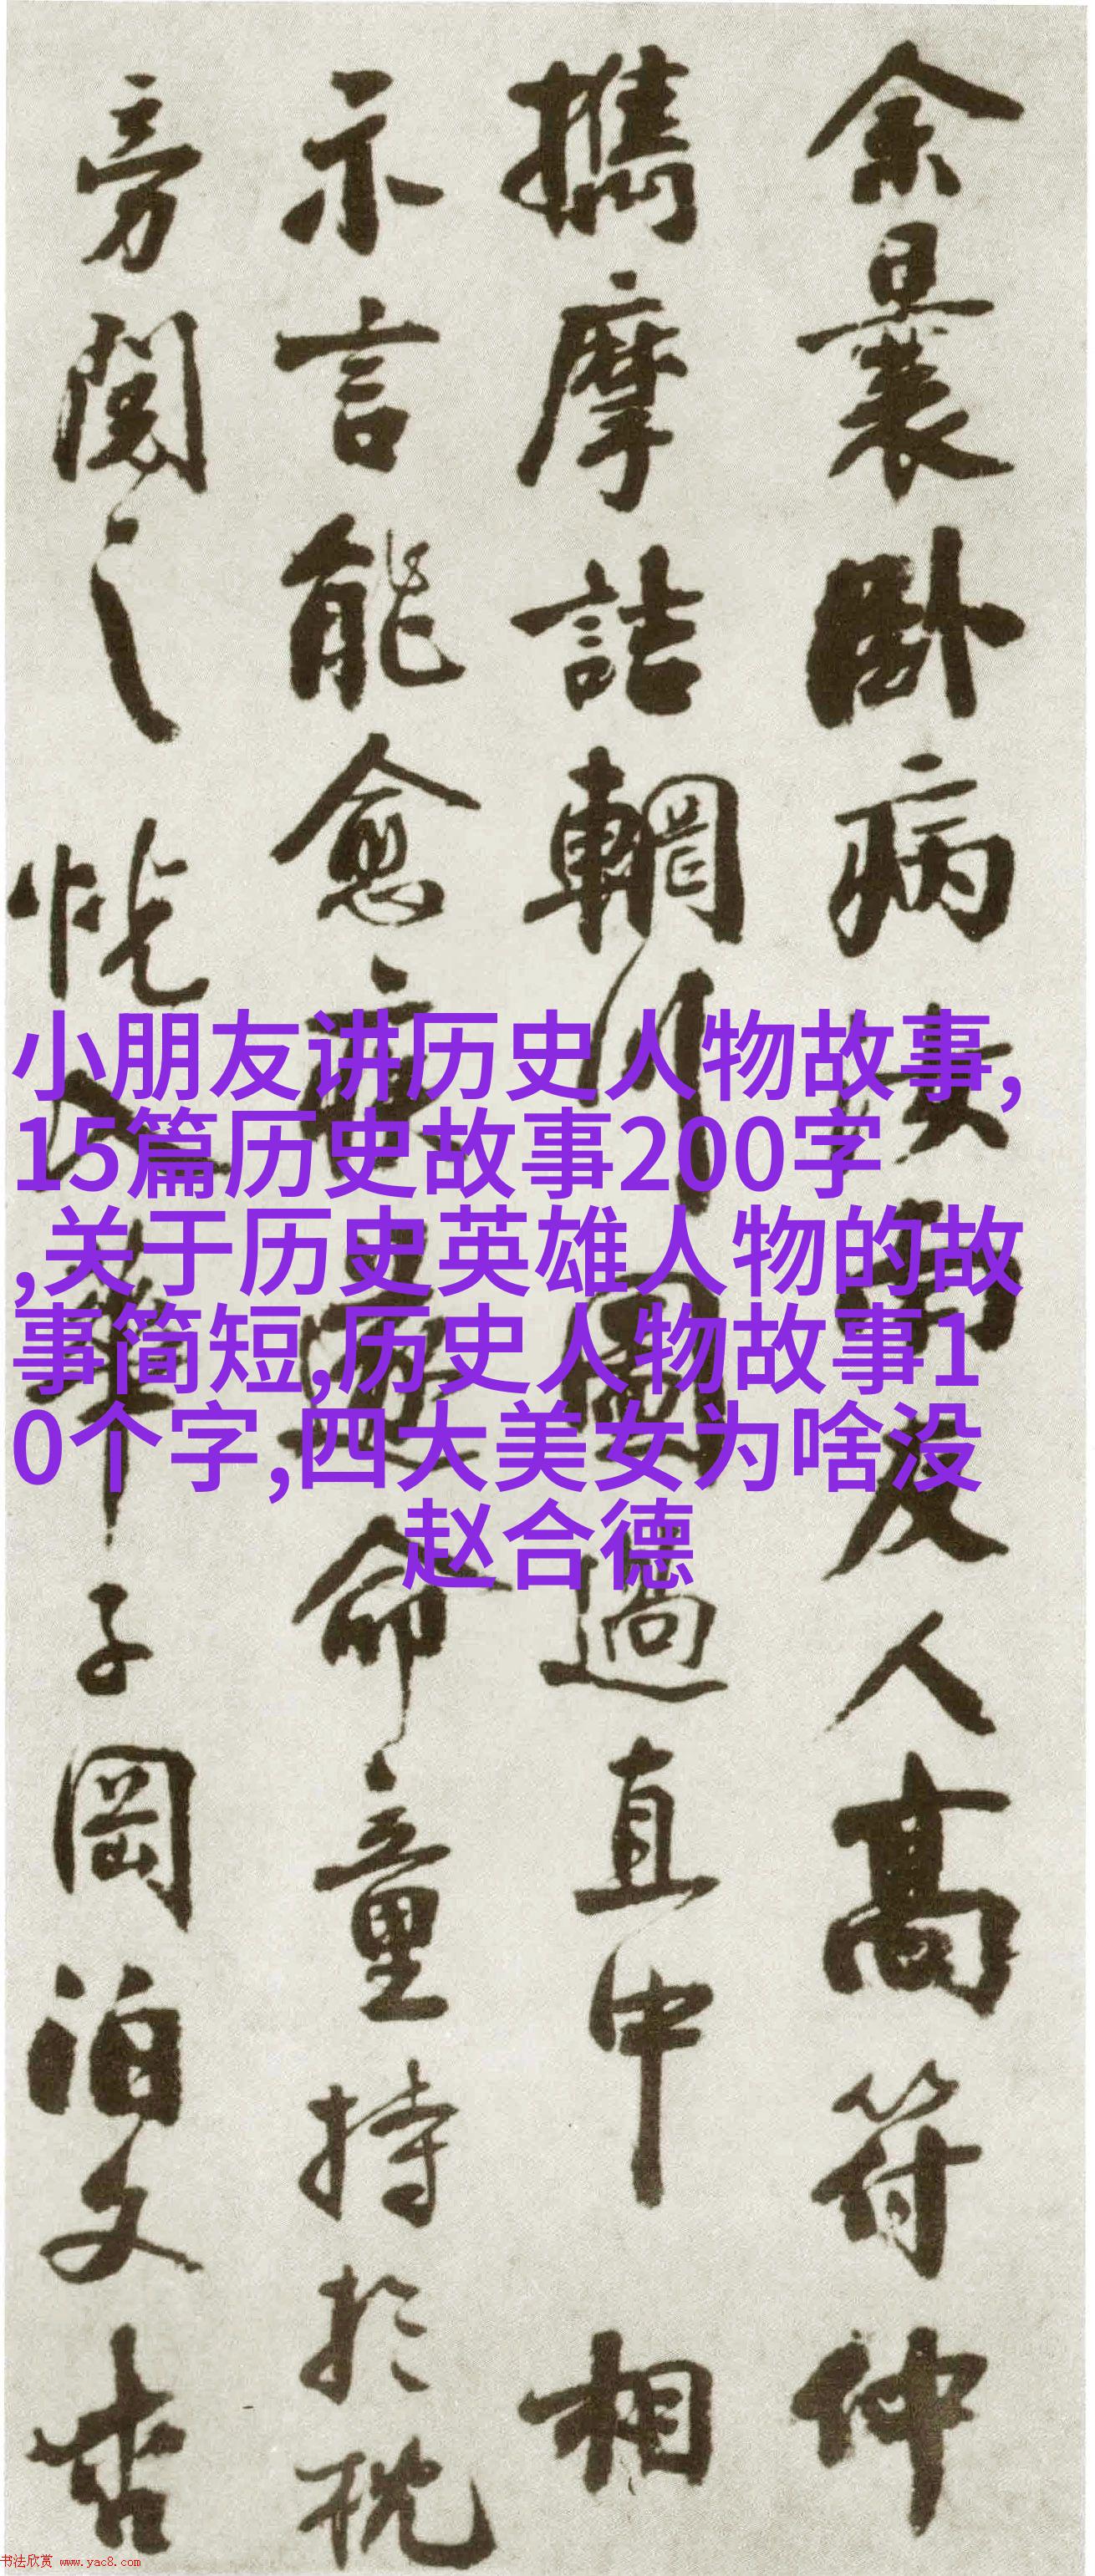 余曩卧病汝南友人高符仲
攜摩詰輞川圖過直中相
示言能愈疾遂命童持於枕
旁閱之恍入華子岡泊文杏
小朋友讲历史人物故事,
15篇历史故事200字
,关于历史英雄人物的故
事简短,历史人物故事1
0个字,四大美女为啥没
赵合德
书法欣赏 www.yac8.com